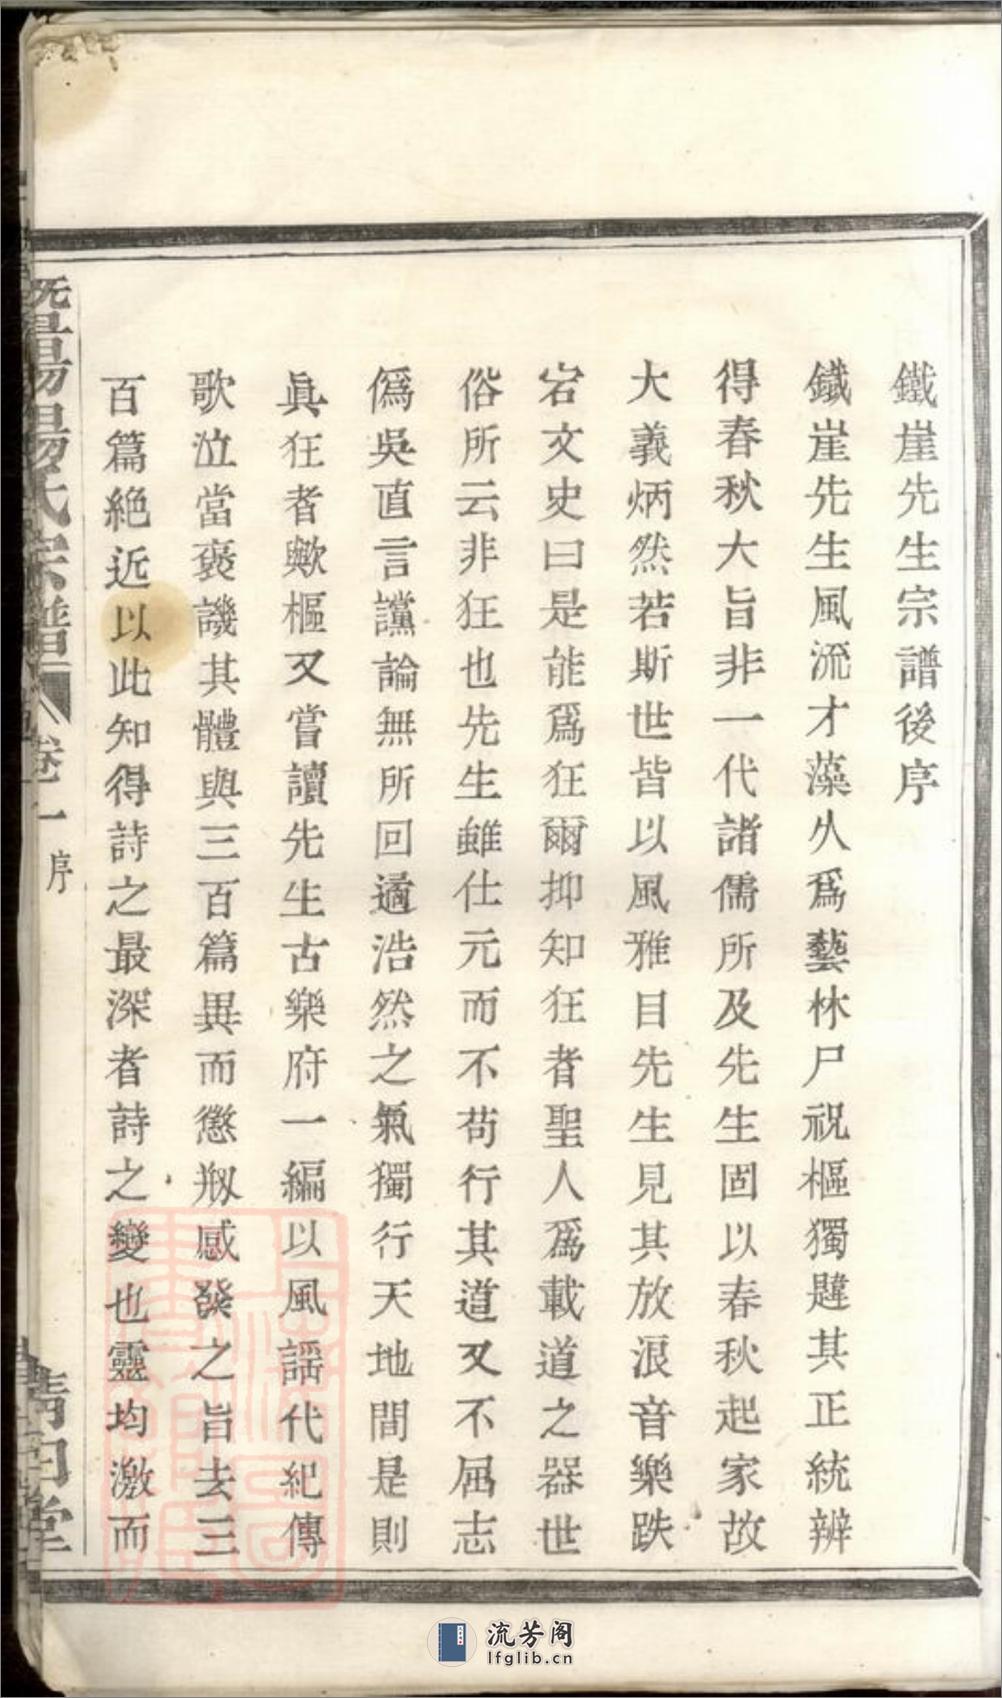 鐵崖先生宗譜後序
鐵崖先生風流才藻久爲藝林尸祝樞獨韙其正統辨
得春秋大旨非一代諸儒所及先生固以春秋起家故
大義炳然若斯世皆以風雅目先生見其放浪音樂跌
宕文史曰是能爲狂爾抑知狂者聖人爲載道之器世
俗所云非狂也先生雖仕元而不苟行其道又不屈志
僞吳直言讜論無所回遹浩然之氣獨行天地間是則
眞狂者歟樞又嘗讀先生古樂府一編以風謡代紀傳
歌泣當褒譏其體與三百篇異而懲剏感發之旨去三
百篇絶近以此知得詩之最深者詩之變也靈均激而
暨陽楊氏宗譜 卷一 序
流芳阁
lfglib.cn